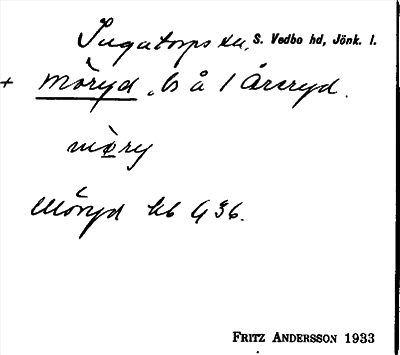 Ingatorps sn, S. Vedbo hd, Jönk. l.
+ Möryd, bs å 1 Årseryd.
mö̀ry
Möryd kb G 36.
FRITZ ANDERSSON 1933